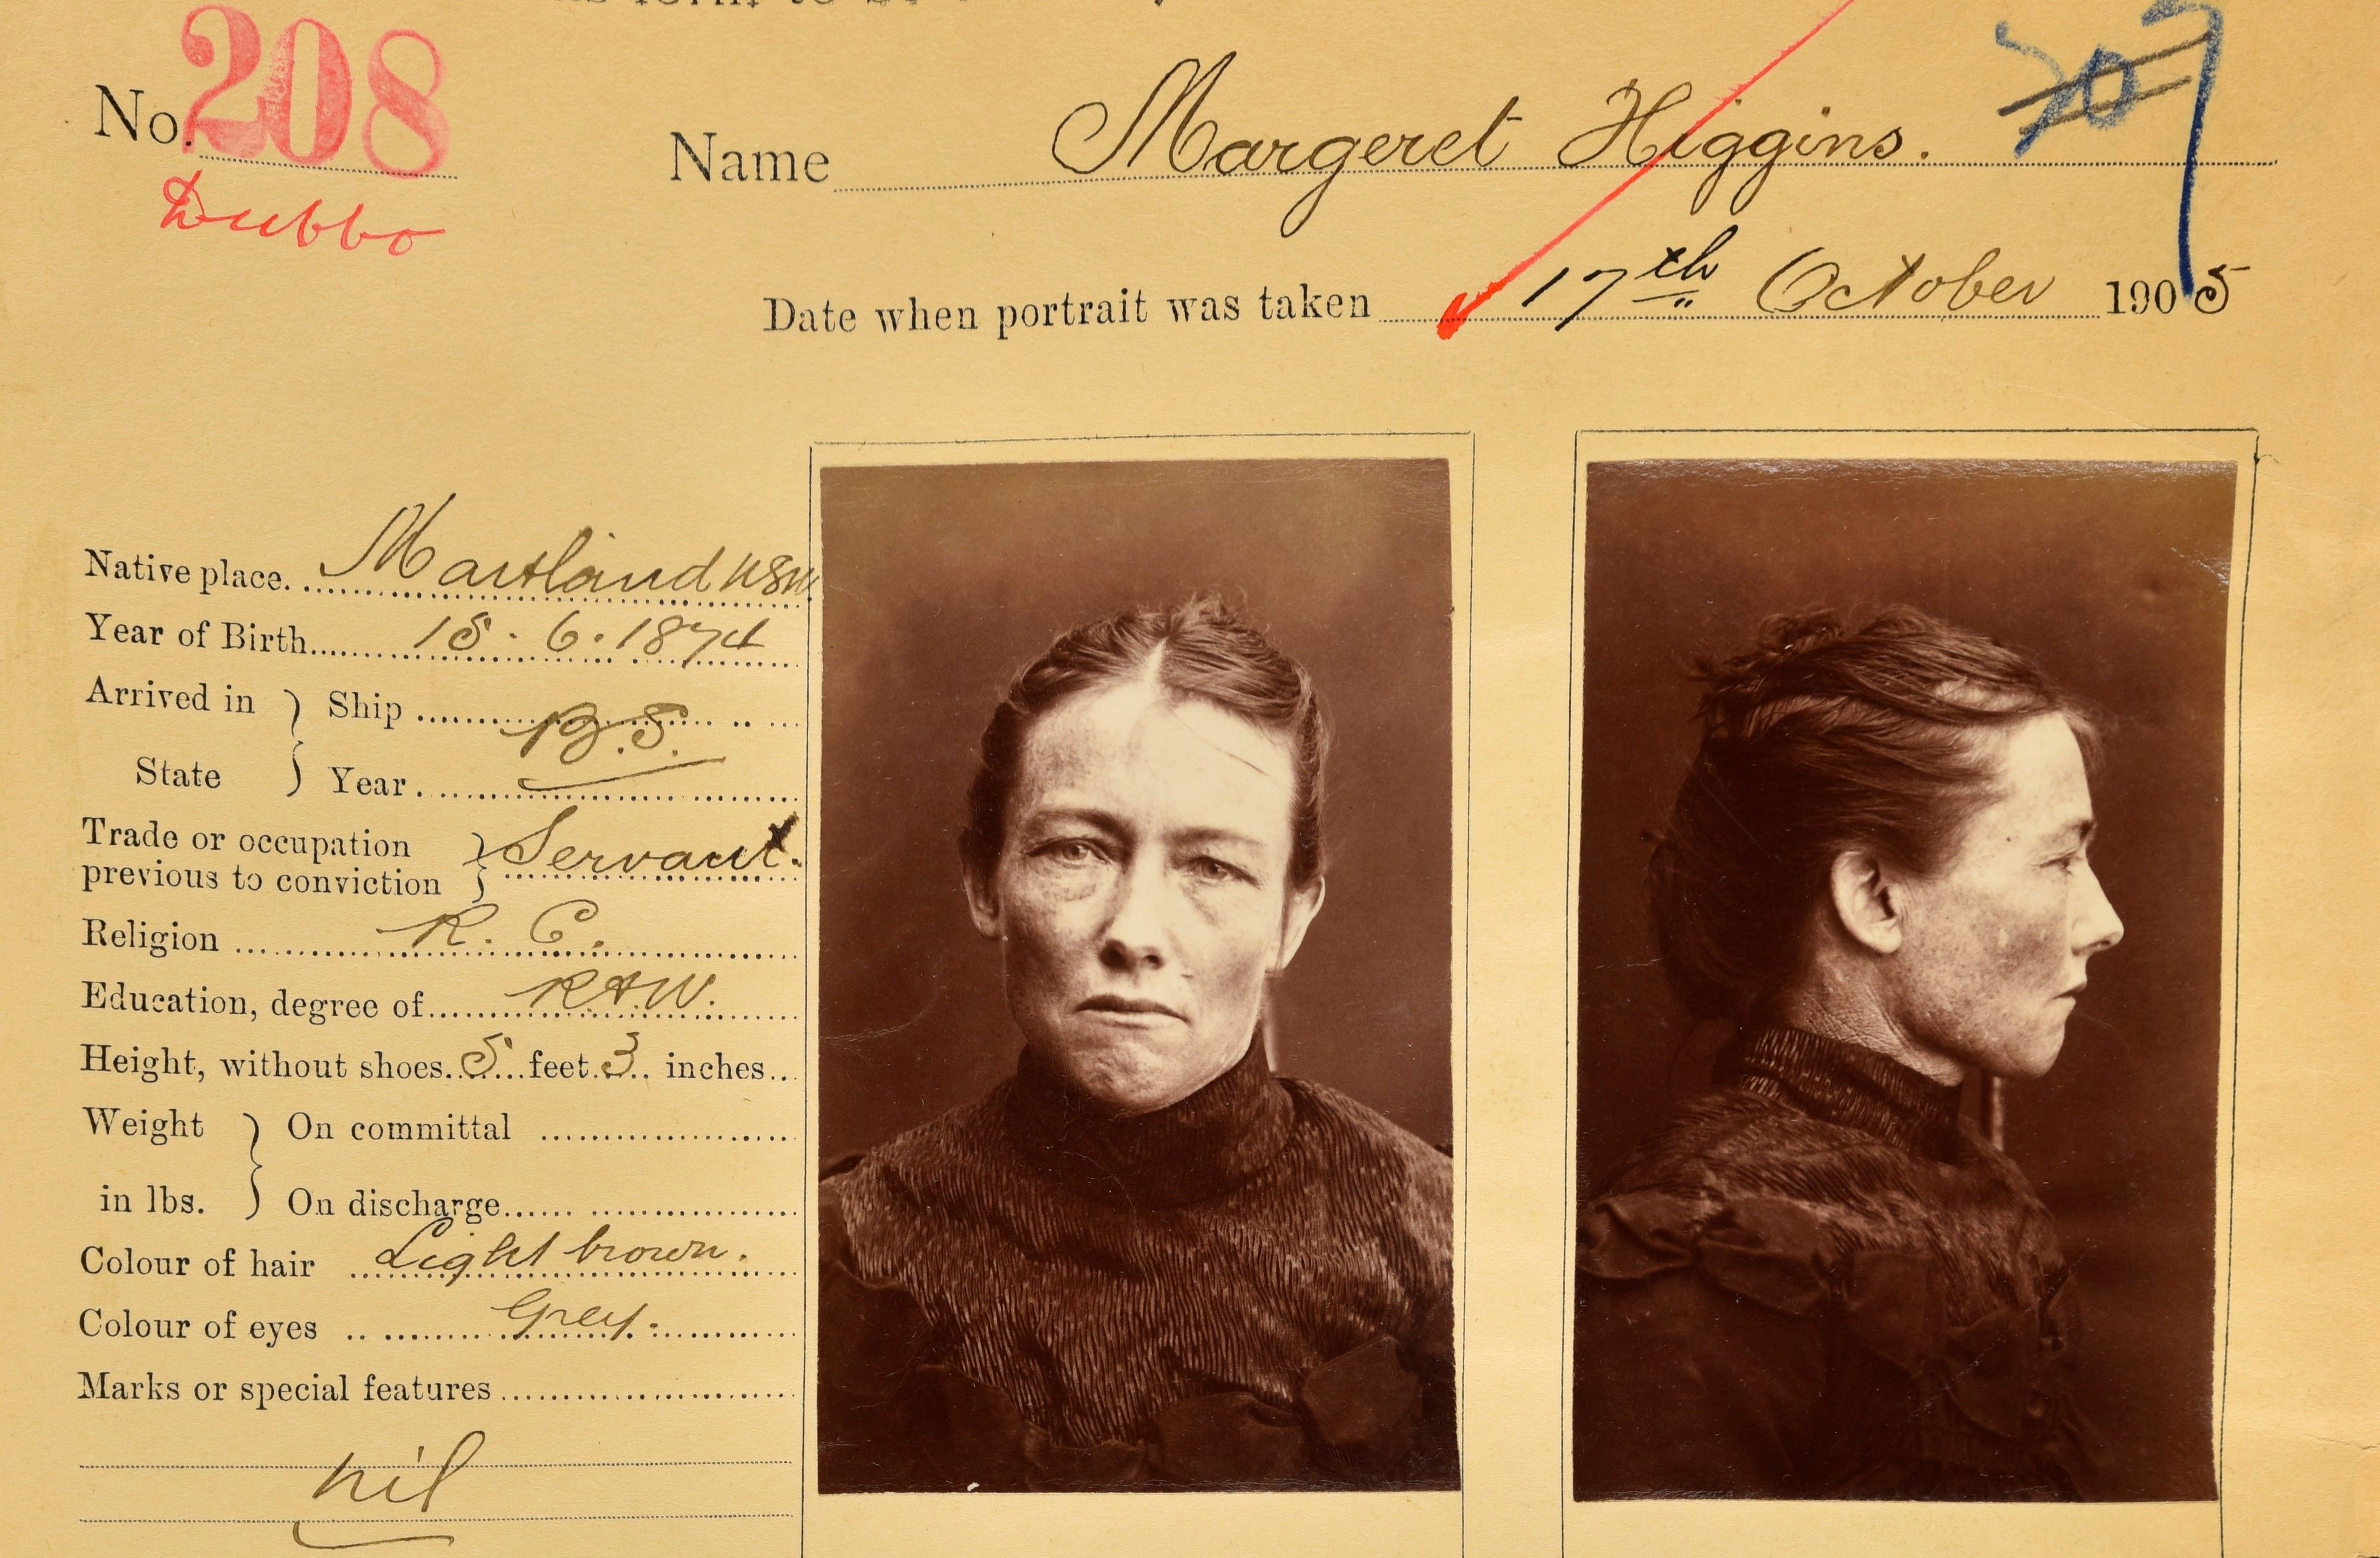 No. 208
Dubbo
207
Name Margeret Higgins.
Date when portrait was taken 17th October 1905
Native place. Maitland NSW
Year of Birth 15. 6. 1874
Arrived in State } Ship B.S.
Year
Trade or occupation previous to conviction } Servant.
Religion R. C.
Education, degree of R & W.
Height, without shoes 5 feet 3 inches
Weight in lbs. } On committal
On discharge
Colour of hair Light brown.
Colour of eyes Grey.
Marks or special features
nil